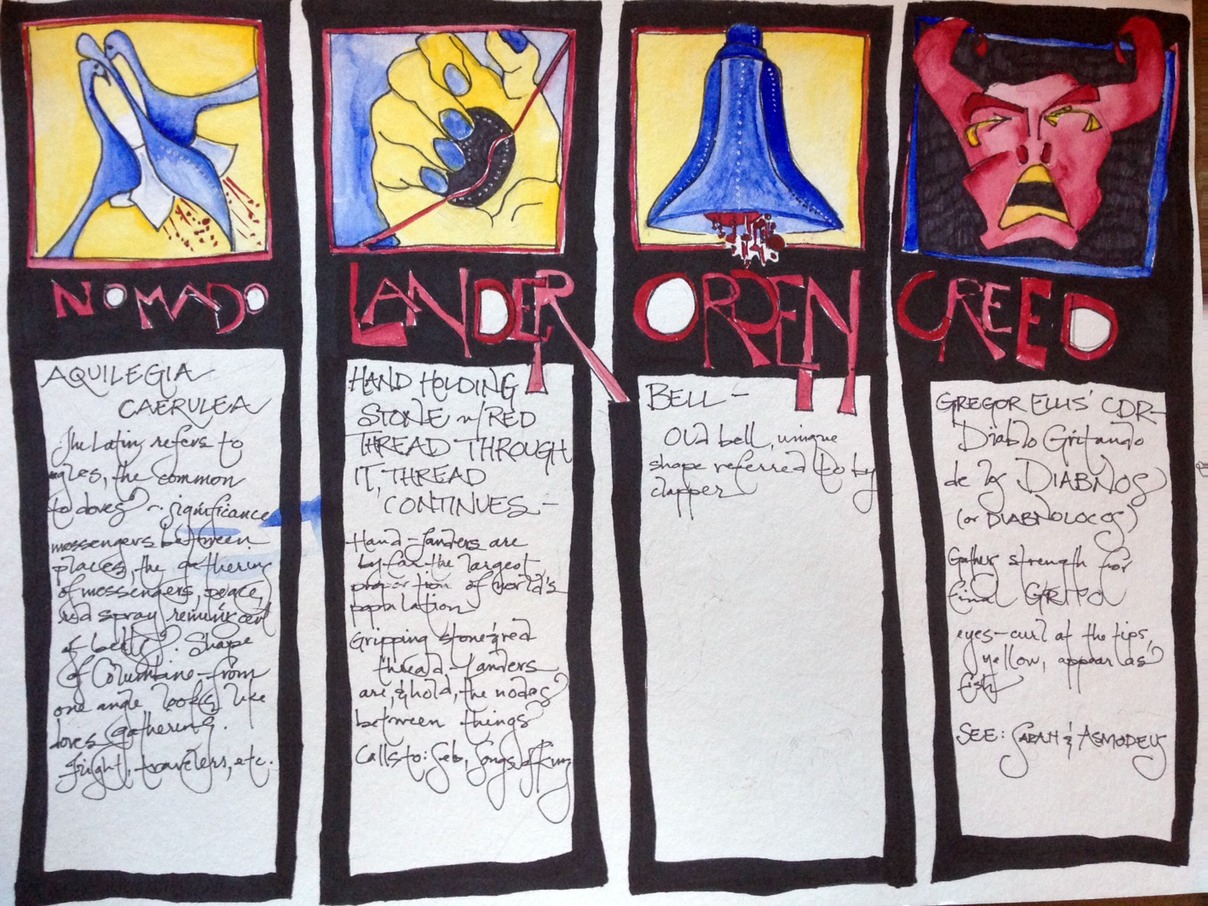 NOMADO
AQUILEGIA
CAERULEA
The Latin refers to
the common
to doves ~ significance
messengers between
places, the gathering
of messengers, peace,
red spray reminiscent
of Shape
of Columbine - from
one angle looks like
doves gathering.
flight, travelers, etc.
LANDER
HAND HOLDING
STONE w/ RED
THREAD THROUGH
IT, THREAD
CONTINUES -
Hand - Landers are
by far the largest
proportion of world's
population
Gripping stone & red
thread - Landers
are, & hold, the nodes
between things
Calls to: Geb,
ORDEN
BELL -
Old bell, unique
shape referred to by
clapper
CREED
GREGOR ELLIS' CDR-
Diablo Gritando
de los DIABNOS
(or DIABNOLOCOS)
Gather strength for
final GRITO
eyes - curl at the tips,
yellow, appear as
fish
SEE: SARAH & ASMODEUS